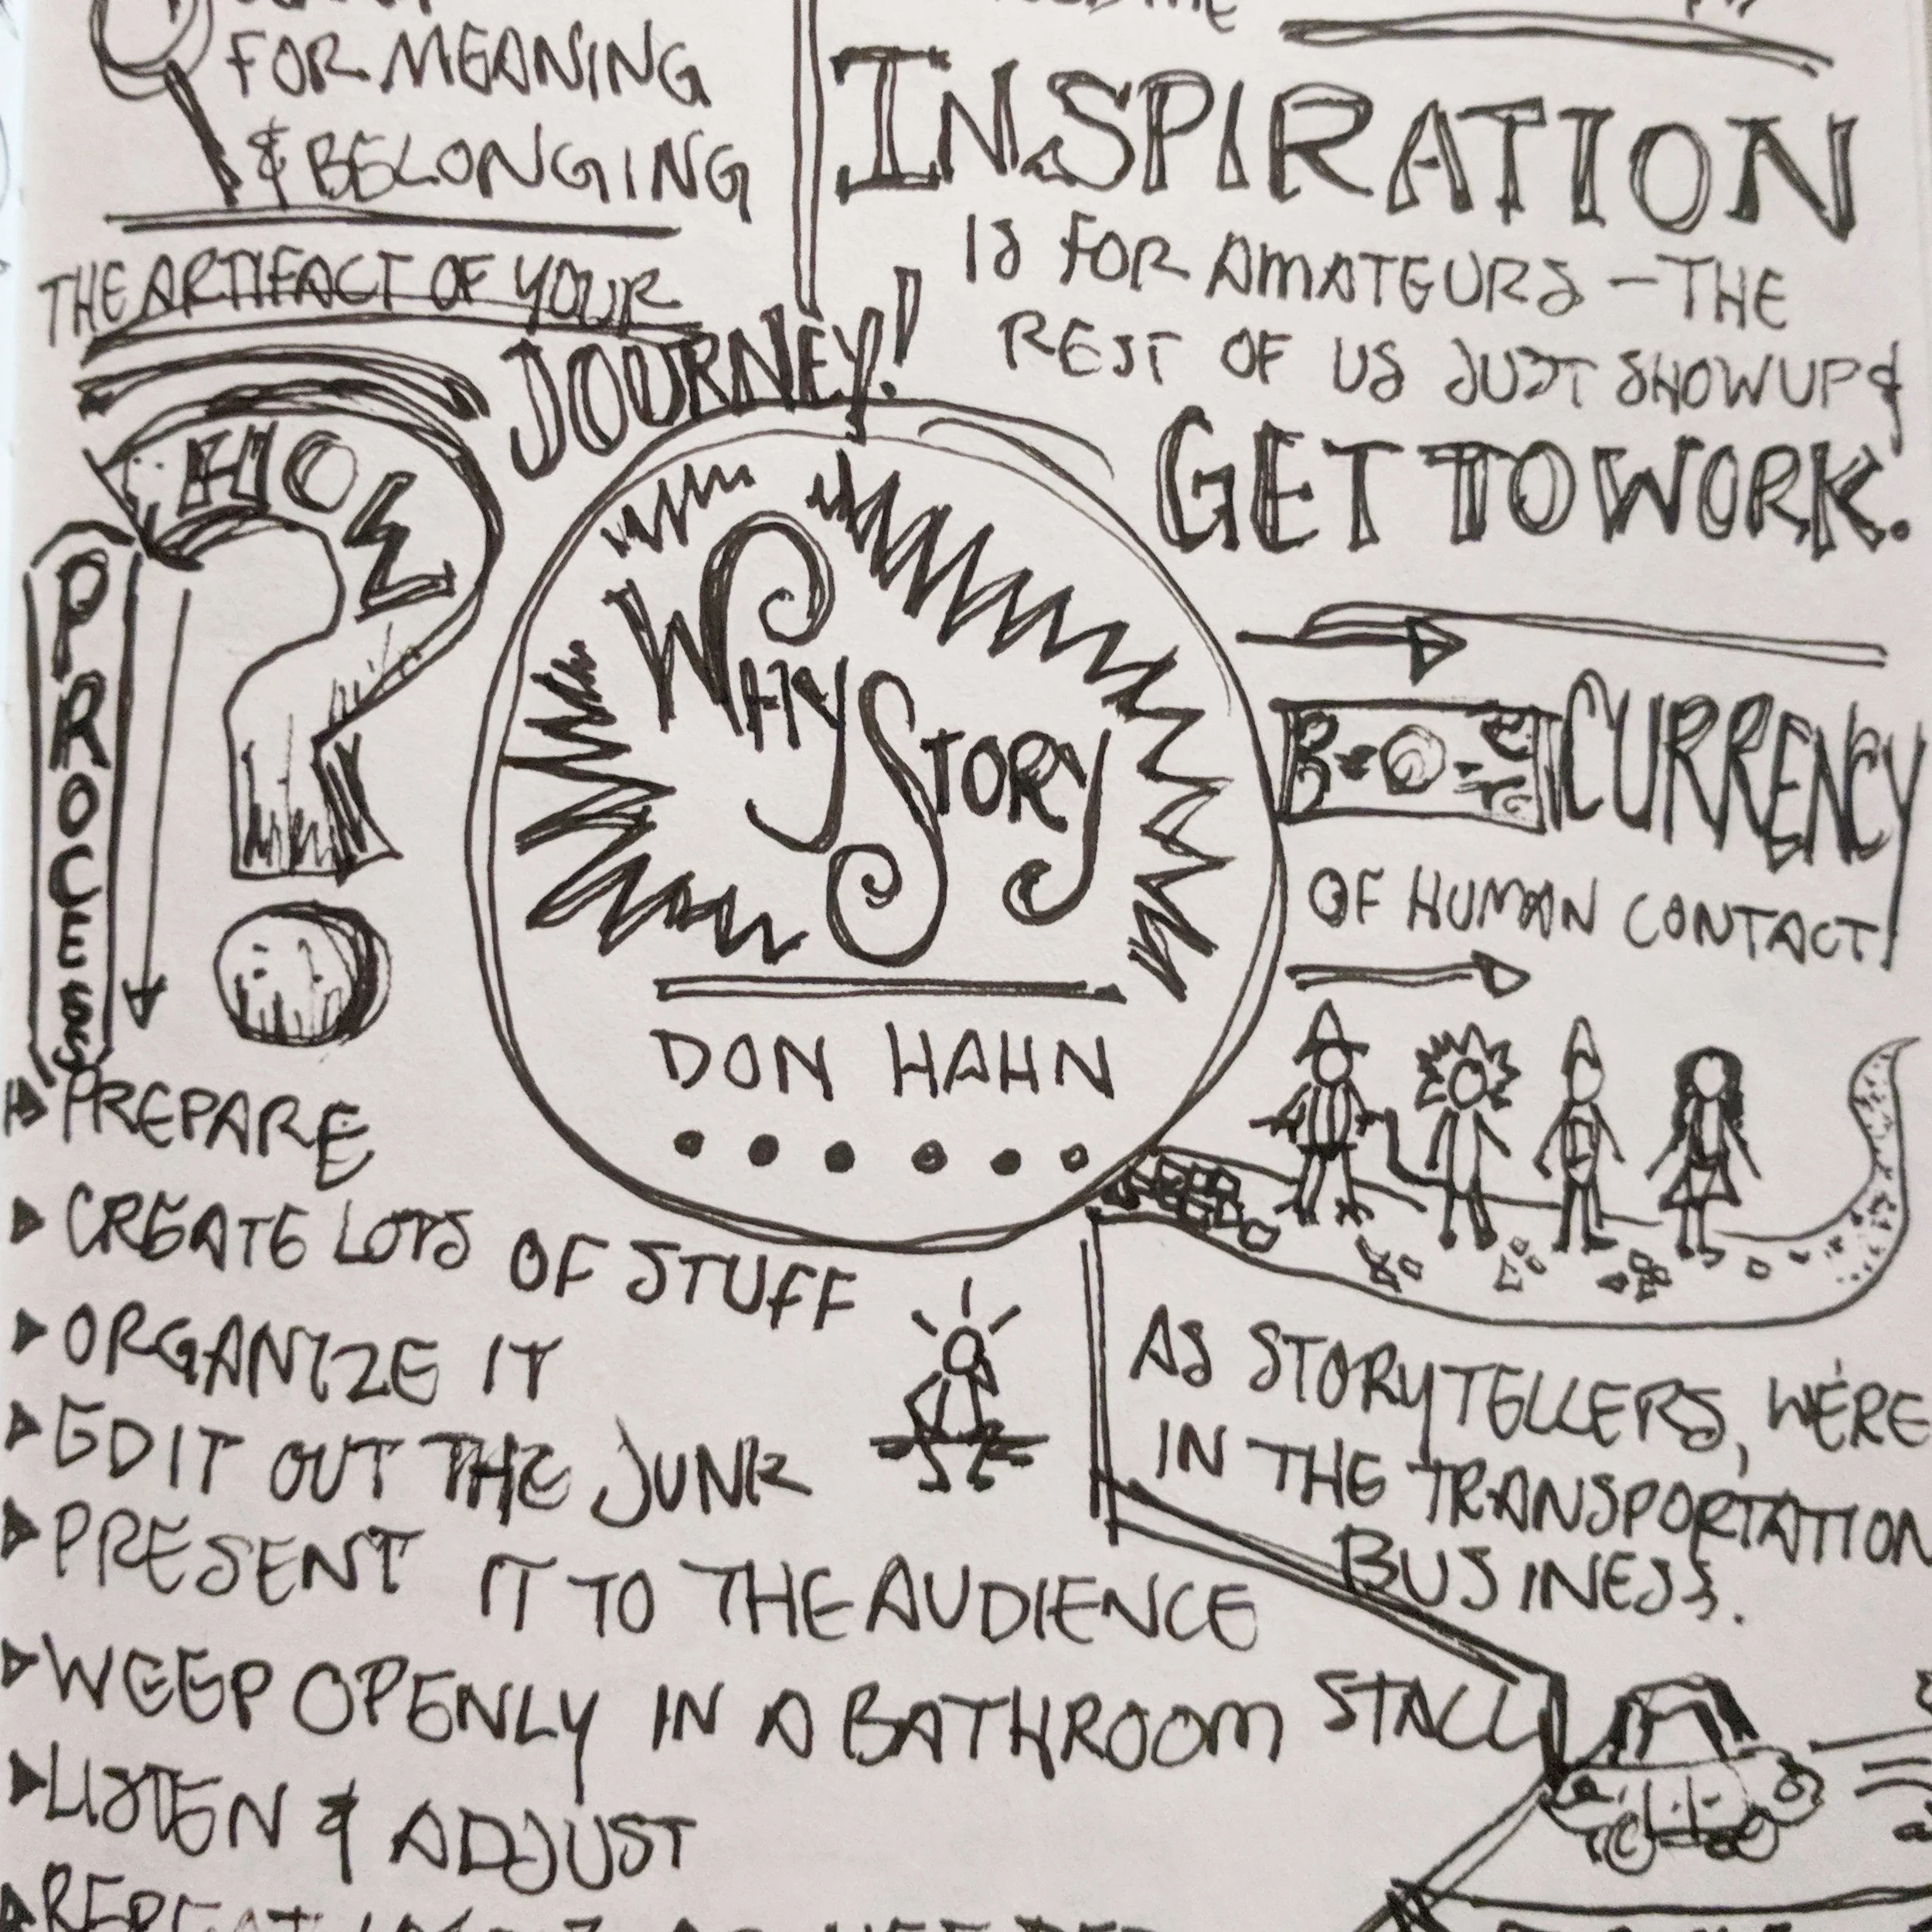 FOR MEANING
& BELONGING
THE ARTIFACT OF YOUR
JOURNEY!
INSPIRATION
IS FOR AMATEURS - THE
REST OF US JUST SHOW UP &
GET TO WORK.
WHY STORY
DON HAHN
CURRENCY
OF HUMAN CONTACT
AS STORYTELLERS, WE'RE
IN THE TRANSPORTATION
BUSINESS.
HOW
PROCESS
PREPARE
CREATE LOTS OF STUFF
ORGANIZE IT
EDIT OUT THE JUNK
PRESENT IT TO THE AUDIENCE
WEEP OPENLY IN A BATHROOM STALL
LISTEN & ADJUST
REPEAT